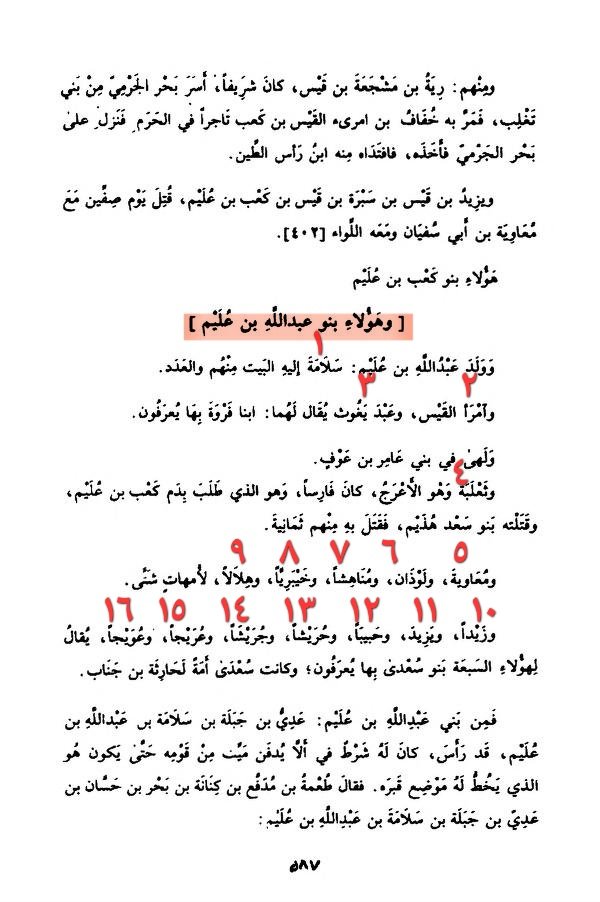 ومِنْهم: رِيَةُ بن مَشْجَعَةَ بن قَيْس، كانَ شَرِيفاً، أَسَرَ بَحْر الجَرْمِيّ مِنْ بَني
تَغْلِب، فَمَرَّ به خُفَافُ بن امرىء القَيْس بن كَعب تَاجراً في الحَرَم فَنَزل على
بَحْر الجَرْميّ فأَخَذَه، فافتَدَاه مِنه ابنُ رَأس الطِّين.
ويزِيدُ بن قَيْس بن سَبْرَة بن قَيْس بن كَعْب بن عُلَيْم، قُتِلَ يَوْم صِفِّين مَعَ
مُعَاوِيَة بن أَبي سُفيَان ومَعَه اللِّواء [٤٠٢].
هَؤُلاءِ بنو كَعْب بن عُلَيْم
[ وهَؤُلاءِ بنو عبداللَّهِ بن عُلَيْم ]
١
وَوَلَدَ عَبْدُاللَّهِ بن عُلَيْم: سَلَامَةَ إليهِ البَيت مِنْهُم والعَدَد.
٢ ٣
وآمْرَأ القَيْس، وعَبْدَ يَغُوث يُقال لَهُما: ابنا فَرْوَةَ بِهَا يُعرَفُون.
وَلَهىٰ في بني عَامِر بن عَوْفٍ.
٤
وثَعْلَبَةَ وَهُو الأَعْرَجُ، كانَ فَارِساً، وَهو الذي طَلَبَ بِدَم كَعْب بن عُلَيْم،
وقَتَلَتْه بَنو سَعْد هُذَيْم، فَقَتَلَ بِهِ مِنْهم ثَمَانِيةَ.
٥ ٦ ٧ ٨ ٩
ومُعَاويةَ، ولَوْذَان، ومُنَاهِشاً، وخَيْبَرِيّاً، وهِلَالاً، لأُمهاتٍ شَتَّى.
١٠ ١١ ١٢ ١٣ ١٤ ١٥ ١٦
وزَيْداً، ويَزِيدَ، وحَبيبَاً، وحُرَيْشاً، وجُرَيْشَاً، وعُرَيْجاً، وعُوَيْجاً، يُقالُ
لِهؤُلاءِ السَبعَة بَنو سُعْدىٰ بِها يُعرَفُون؛ وكانت سُعْدَى أَمَةً لِحَارِثَة بن جَنَاب.
فَمِن بَني عَبْدِاللَّهِ بن عُلَيْم: عَدِيُّ بن جَبَلَة بن سَلَامَة بن عَبْداللَّهِ بن
عُلَيْم، قد رَأَسَ، كانَ لَهُ شَرْطٌ في ألاَّ يُدفَن مَيّت مِنْ قَوْمِه حَتَّى يَكون هُو
الذي يَخُطُّ لَهُ مَوْضِع قَبَرَه. فقالَ طُعْمةُ بن مُدَفَّع بن كِنَانَة بن بَحْر بن حَسَّان بن
عَدِيّ بن جَبَلَة بن سَلَامَة بن عَبْدِاللَّهِ بن عُلَيْم:
٥٨٧